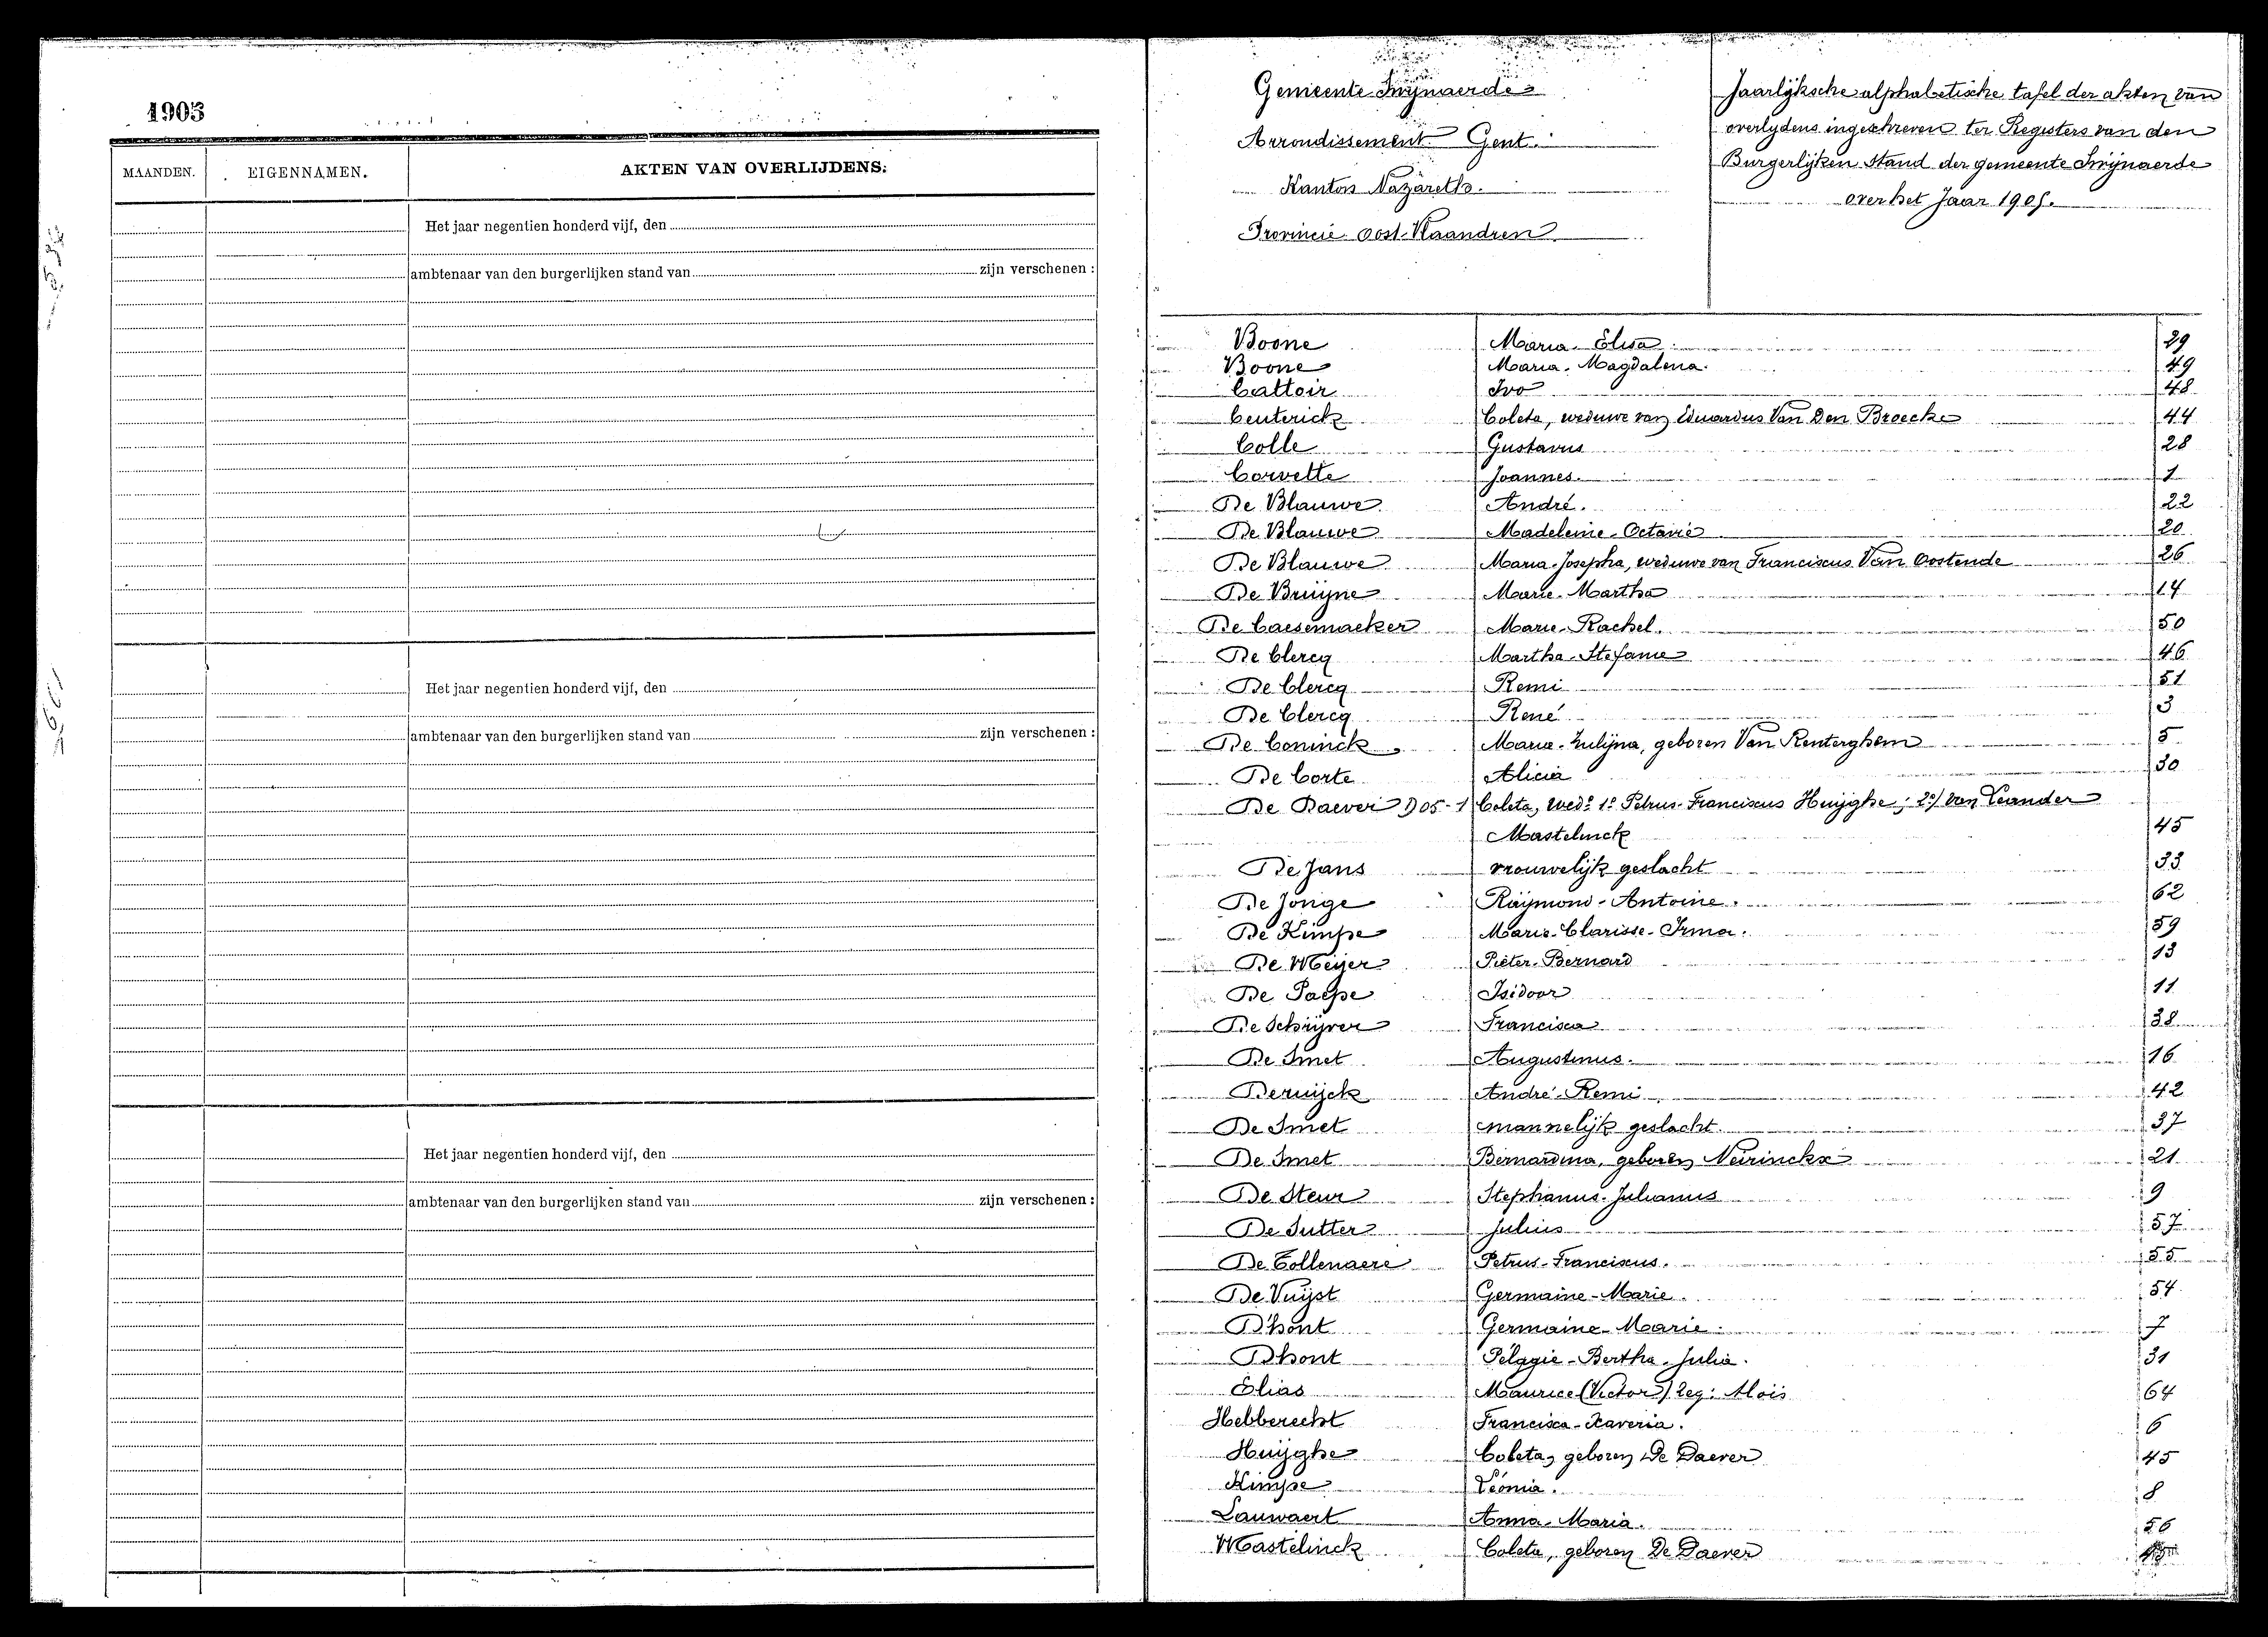 1905
MAANDEN. EIGENNAMEN. AKTEN VAN OVERLIJDENS:
Het jaar negentien honderd vijf, den
ambtenaar van den burgerlijken stand van zijn verschenen :
Het jaar negentien honderd vijf, den
ambtenaar van den burgerlijken stand van zijn verschenen :
Het jaar negentien honderd vijf, den
ambtenaar van den burgerlijken stand van zijn verschenen :
Gemeente Swijnaerde
Arrondissement Gent.
Kanton Nazareth.
Provincie Oost-Vlaandren
Jaarlijksche alphabetische tafel der akten van
overlydens ingeschreven ter Registers van den
Burgerlijken Stand der gemeente Swijnaerde
over het Jaar 1905.
Boone Maria-Elisa 29
Boone Maria-Magdalena. 49
Cattoir Ivo 48
Ceuterick Coleta, weduwe van Eduardus Van Den Broecke 44
Colle Gustavus 28
Corvette Joannes. 1
De Blauwe André. 22
De Blauwe Madeleine-Octavie 20
De Blauwe Maria-Josepha, weduwe van Franciscus Van Oostende 26
De Bruijne Marie-Martha 14
De Caesemaeker Marie-Rachel. 50
De Clercq Martha-Stefanie 46
De Clercq Remi 51
De Clercq René 3
De Coninck Maria-Julijna, geboren Van Renterghem 5
De Corte Alicia 30
De Daever Coleta, wede 1º Petrus-Franciscus Huijghe; 2º/ van Leander
Mastelinck 45
De Jans vrouwelijk geslacht 33
De Jonge Raymond-Antoine. 62
De Kimpe Marie-Clarisse-Irma. 59
De Meijer Pieter-Bernard 13
De Paepe Isidoor 11
De Schrijver Francisca 38
De Smet Augustinus. 16
Deruijck André-Remi 42
De Smet mannelijk geslacht 37
De Smet Bernardina, geboren Neirinckx 21
De Steur Stephanus-Julianus 9
De Sutter Julius 57
De Tollenaere Petrus-Franciscus. 55
De Vuijst Germaine-Marie. 54
Dhont Germaine-Marie. 7
Dhont Pelagie-Bertha-Julia. 31
Elias Maurice (Victor) Leg: Aloïs 64
Hebberecht Francisca-Xaveria. 6
Huijghe Coleta, geboren De Daever 45
Kimpe Léonia. 8
Lauwaert Anna-Maria. 56
Mastelinck Coleta, geboren De Daever